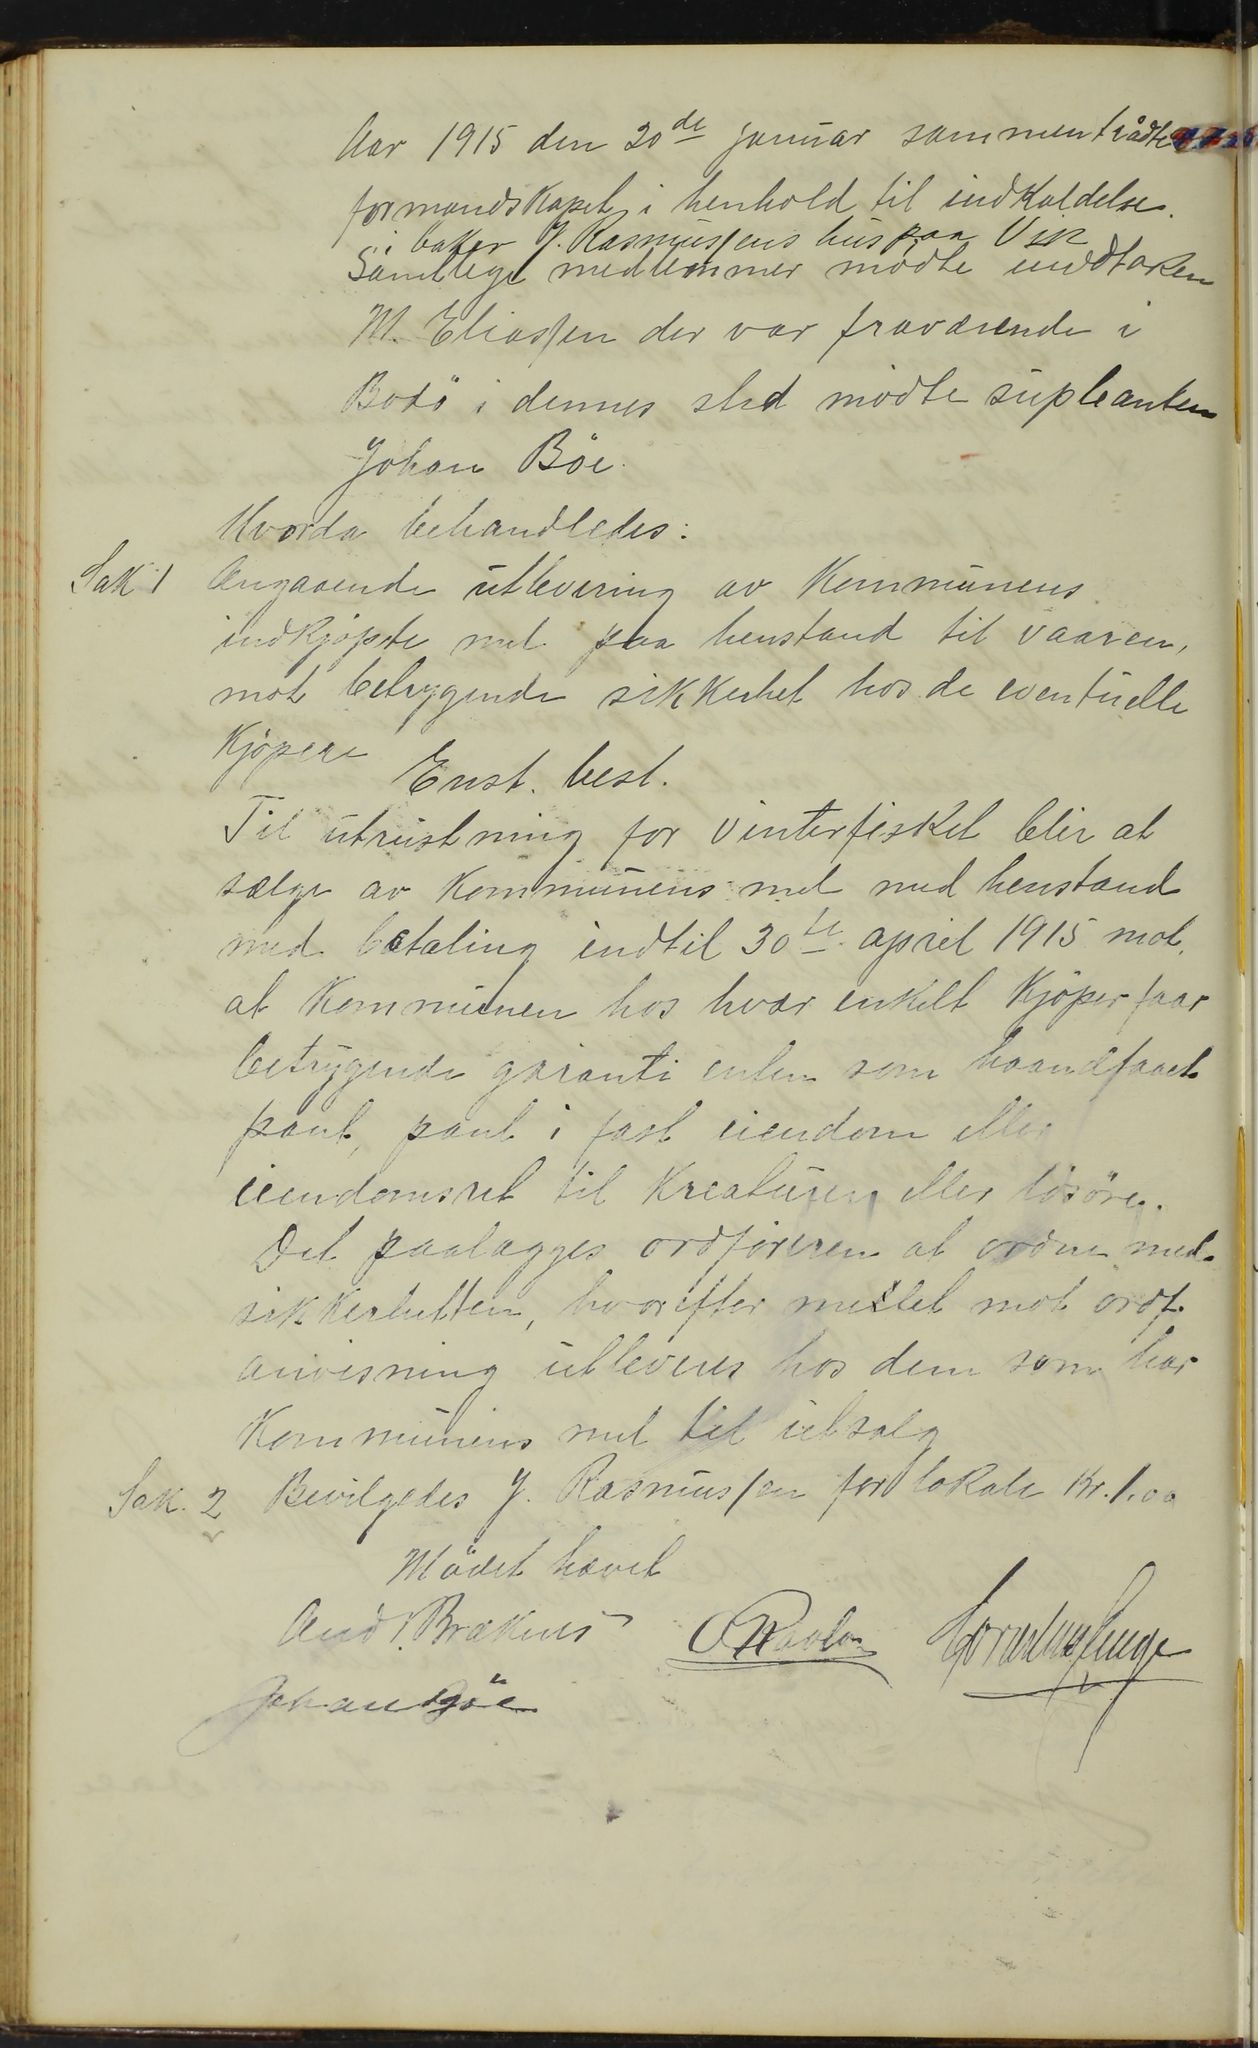 Aar 1915 den 20de januar sammentrådte
formandskapet i henhold til indkaldelse.
i baker J. Rasmussens hus paa Vik
Samtlige medlemmer mödte undtaken
M. Eliassen der var fraværende i
Bodö i dennes sted mödte supleanten
Johan Böe.
Hvorda behandledes:
Sak 1 Angaaende utlevering av Kommunens
indkjöpte mel paa henstand til vaaren,
mot betryggende sikkerhet hos de eventuelle
Kjöpere
Enst. best.
Til utrustning for vinterfisket blir at
sælge av Kommunens mel med henstand
med betaling indtil 30te april 1915 mot
at Kommunen hos hvær enkelt Kjöper faar
betrygende garanti enten som haandfaaet
pant, pant i fast eiendom eller
eiendomsret til Kreaturer eller lösöre.
Det paalægges ordföreren at ordne med
sikkerhetten, hvorefter melet mot ordf.
anvisning utleveres hos dem som har
Kommunens mel til utsalg
Sak. 2 Bevilgedes J. Rasmussen for lokale Kr. 1.00
Mödet hævet
And. Brækkus
Johan Böe